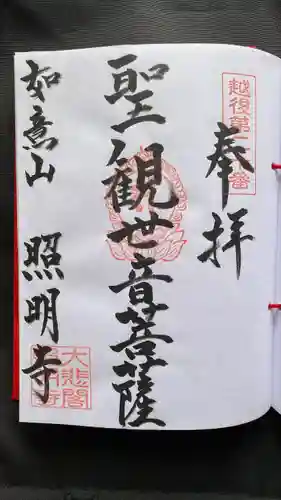 奉拝
越後第
番
聖観世音菩薩
如意山 照明寺
大悲閣